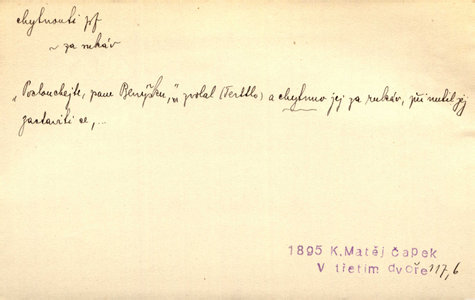 chytnouti pf
~ za rukáv
„Poslouchejte, pane Benýšku," zvolal (Terttlo) a chytnuv jej za rukáv, přinutil jej
zastaviti se,...
1895 K.Matěj Čapek
V třetím dvoře 117,6